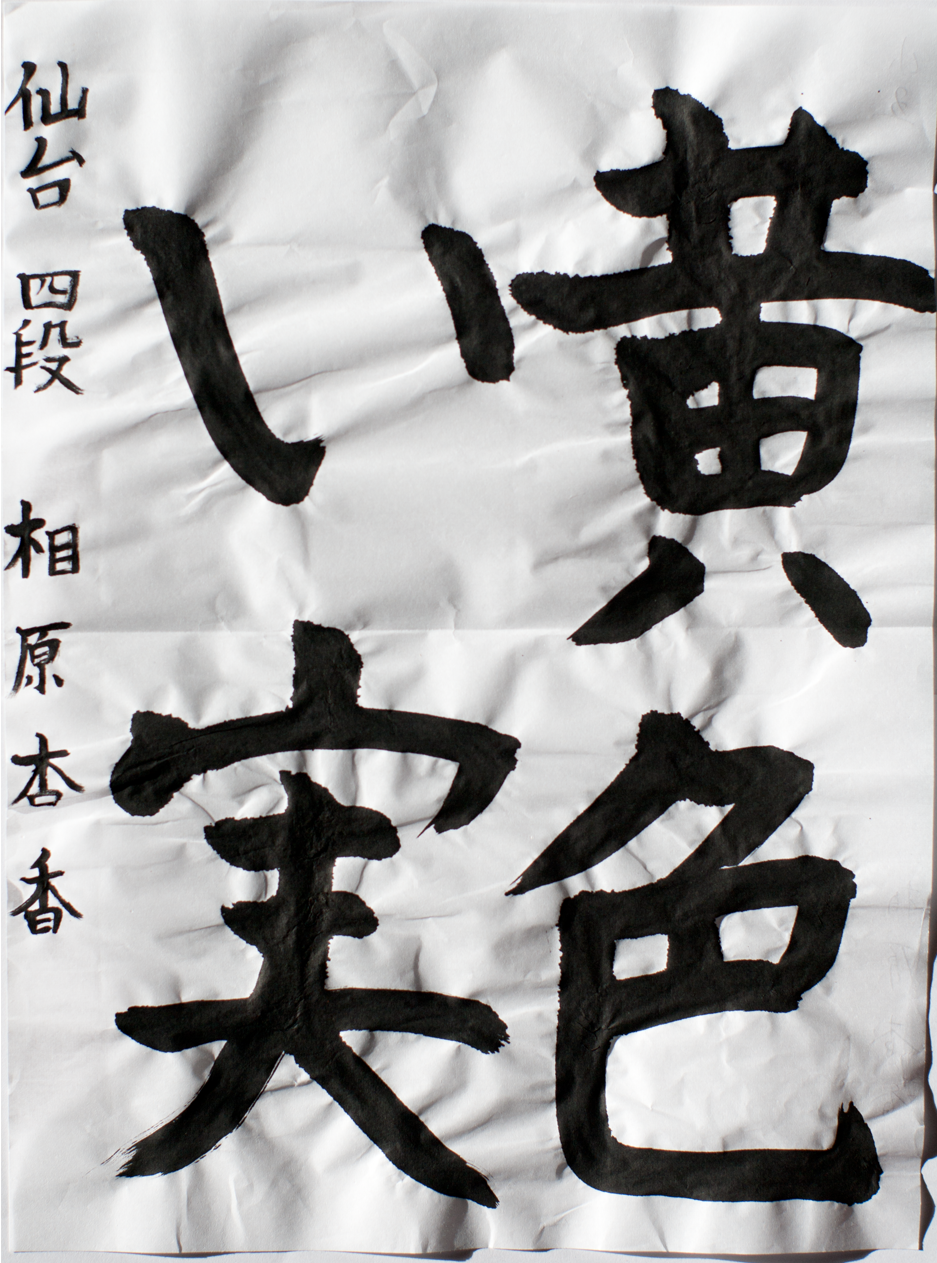 黄色
い実
仙台 四段 相原杏香